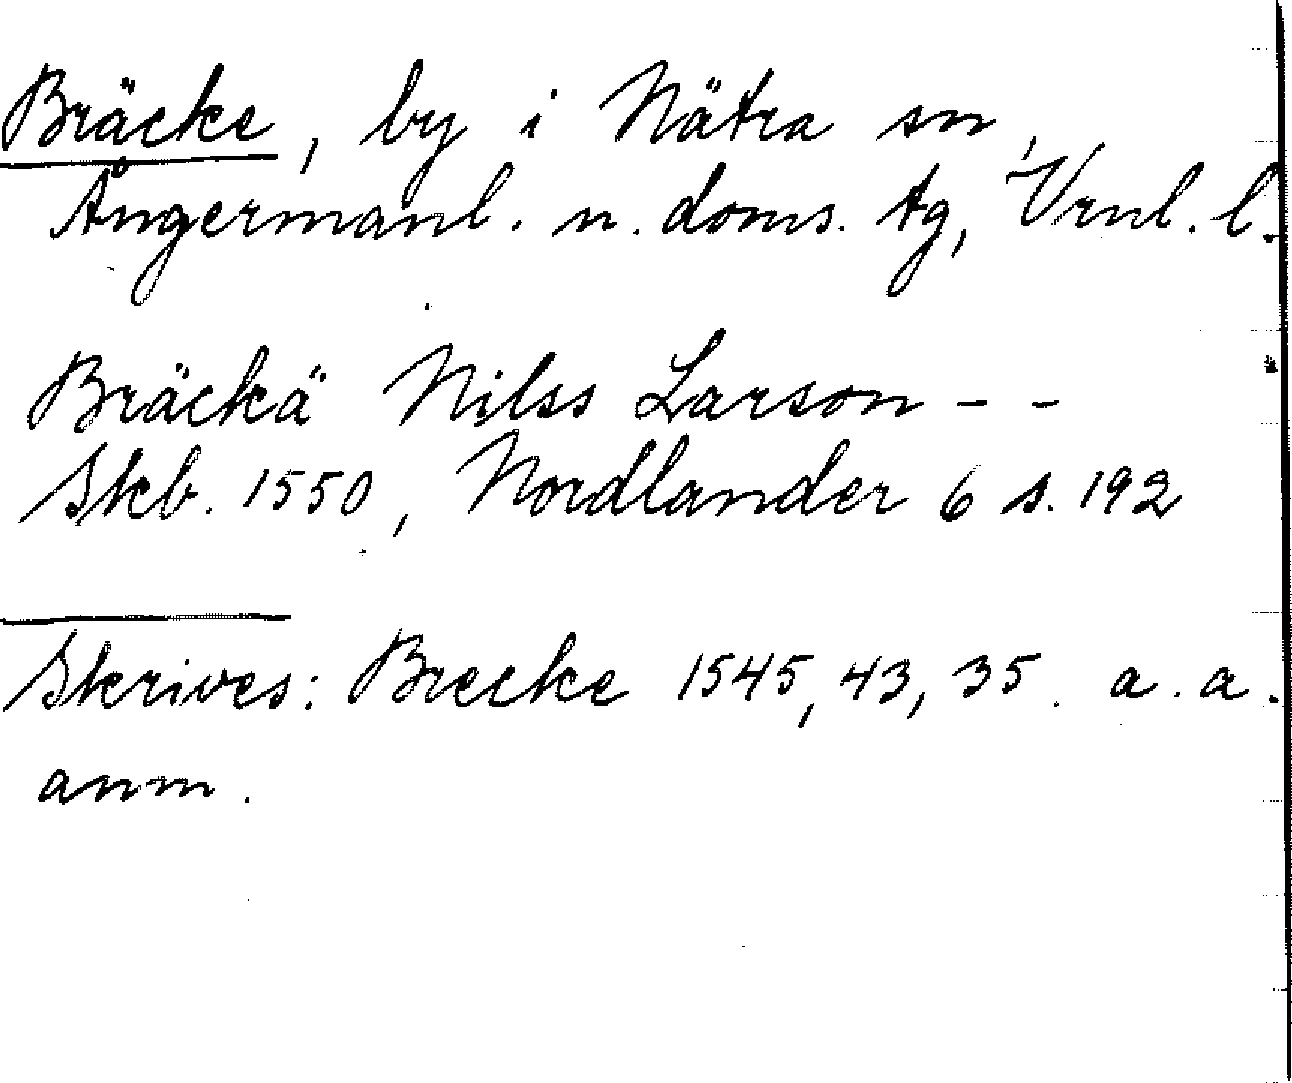 Bräcke, by i Nätra sn,
Ångermanl. n. doms. tg, Vrnl. l.
Bräckä Nilss Larson - -
Skb. 1550, Nordlander 6 s. 192
Skrives: Brecke 1545, 43, 35. a. a.
anm.